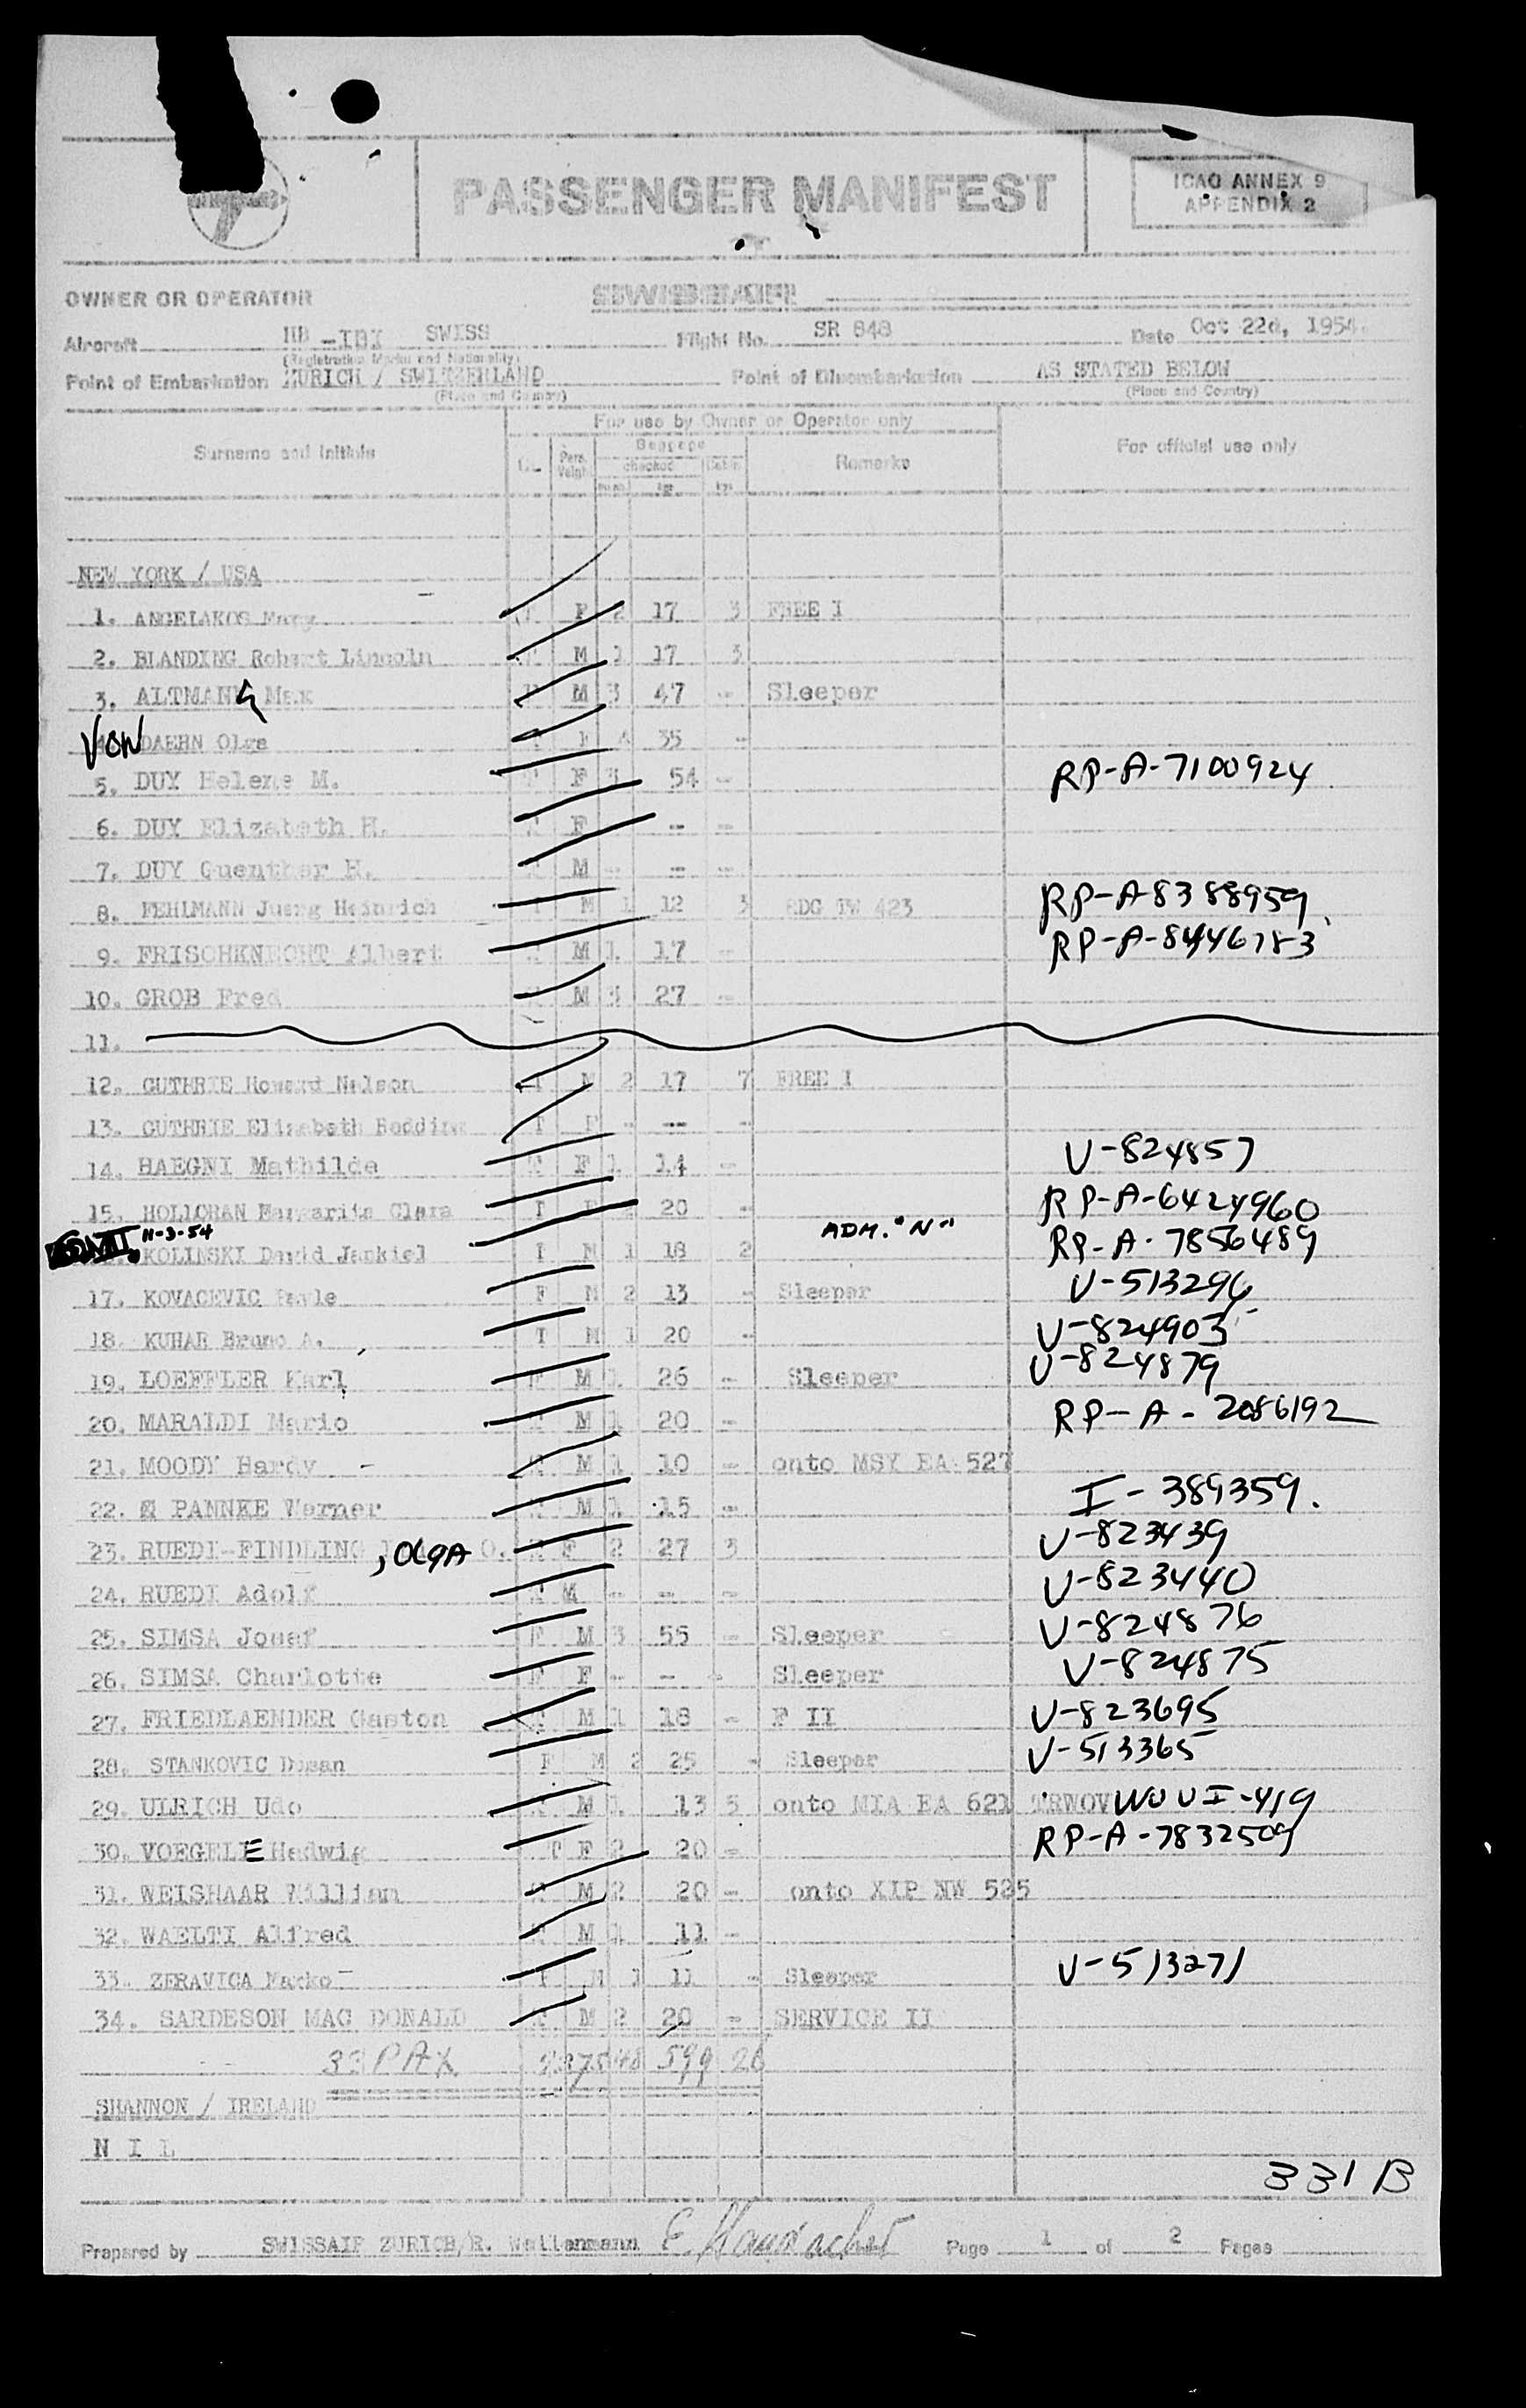 PASSENGER MANIFEST
ICAO ANNEX 9
APPENDIX 2
OWNER OR OPERATOR SWISSAIR
Aircraft HB-IBI SWISS Flight No. SR 848 Date Oct 22d, 1954.
(Registration Marks and Nationality)
Point of Embarkation ZURICH / SWITZERLAND Point of Disembarkation AS STATED BELOW
(Place and Country) (Place and Country)
For use by Owner or Operator only
Surname and Initials CL. Pers. Weight Baggage checked Cabin Remarks For official use only
kgs kgs
NEW YORK / USA
1. ANGELAKOS Mary F 2 17 3 FREE I
2. BLANDING Robert Lincoln M 1 17 3
3. ALTMANN Max M 3 47 - Sleeper
VON DAEHN Olga F 4 35 -
5. DUY Helene M. F 3 54 - RP-A-7100924
6. DUY Elizabeth H. F - -
7. DUY Guenther H. M - - -
8. FEHLMANN Juerg Heinrich T M 1 12 3 RDG TW 423 RP-A-8388959
9. FRISCHKNECHT Albert M 1 17 - RP-A-8446783
10. GROB Fred M 3 27 -
11.
12. GUTHRIE Howard Nelson T M 2 17 7 FREE I
13. GUTHRIE Elizabeth T F - -- -
14. HAEGNI Mathilde T F 1 14 - U-824857
15. HOLLORAN Margarita Clara T F 2 20 - RP-A-6424960
11-3-54 KOLINSKI David Jankiel T M 1 18 2 ADM. "N" RP-A-7856489
17. KOVACEVIC F M 2 13 - Sleeper V-513296
18. KUHAR Bruno A. T M 1 20 - V-824903
19. LOEFFLER Karl F M 1 26 - Sleeper V-824879
20. MARALDI Mario T M 1 20 - RP-A-2086192
21. MOODY Hardy - M 1 10 - onto MSY EA 527
22. PANNKE Werner M 1 15 - I-389359.
23. RUEDI-FINDLING, OlgA O. T F 2 27 3 V-823439
24. RUEDI Adolf T M - - - V-823440
25. SIMSA Josef F M 3 55 - Sleeper V-824876
26. SIMSA Charlotte F F - - - Sleeper V-824875
27. FRIEDLAENDER Gaston T M 1 18 - F II V-823695
28. STANKOVIC Dusan F M 2 25 - Sleeper V-513365
29. ULRICH Udo M 1 13 3 onto MIA EA 621 TRWOV WOVI-419
30. VOEGELE Hedwig T F 2 20 - RP-A-7832509
31. WEISHAAR William M 2 20 - onto XIP NW 525
32. WAELTI Alfred M 1 11 -
33. ZERAVICA Marko F M 1 11 - Sleeper V-513271
34. SARDESON MAC DONALD T M 2 20 - SERVICE II
33 PAX 2275 48 599 26
SHANNON / IRELAND
N I L
331 B
Prepared by SWISSAIR ZURICH/R. Page 1 of 2 Pages